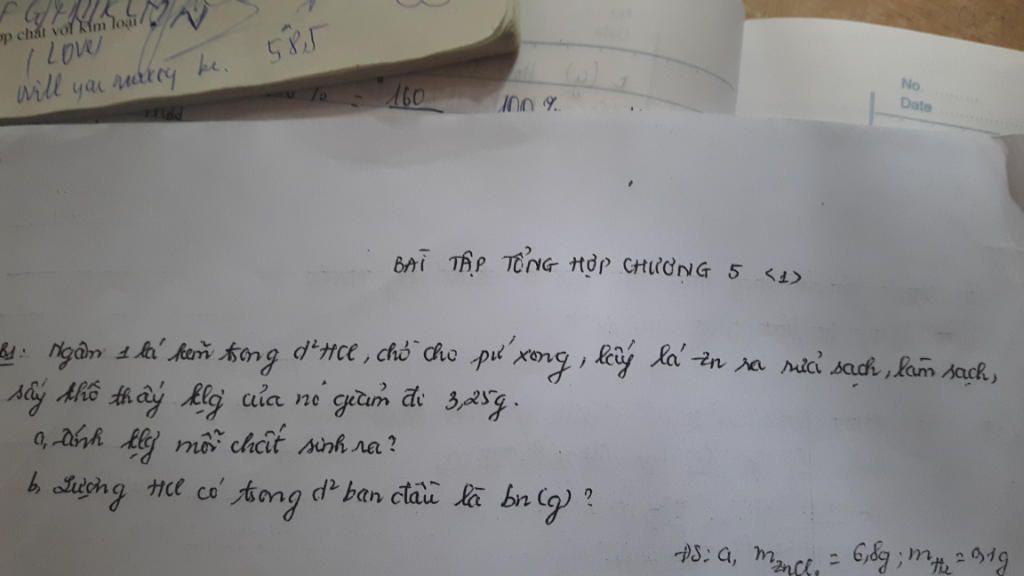 ợp chất với kim loại
I LOVE
will you marry me.
58,5
= 160
100 %
No.
Date
BÀI TẬP TỔNG HỢP CHƯƠNG 5 <1>
B1: Ngâm 1 lá kẽm trong d² HCl, chờ cho pứ xong, lấy lá Zn ra rửa sạch, làm sạch,
sấy khô thấy klg của nó giảm đi 3,25g.
a, Tính klg mỗi chất sinh ra?
b, Lượng HCl có trong d² ban đầu là bn(g)?
ĐS: a, mZnCl₂ = 6,8g; mH₂ = 0,1g